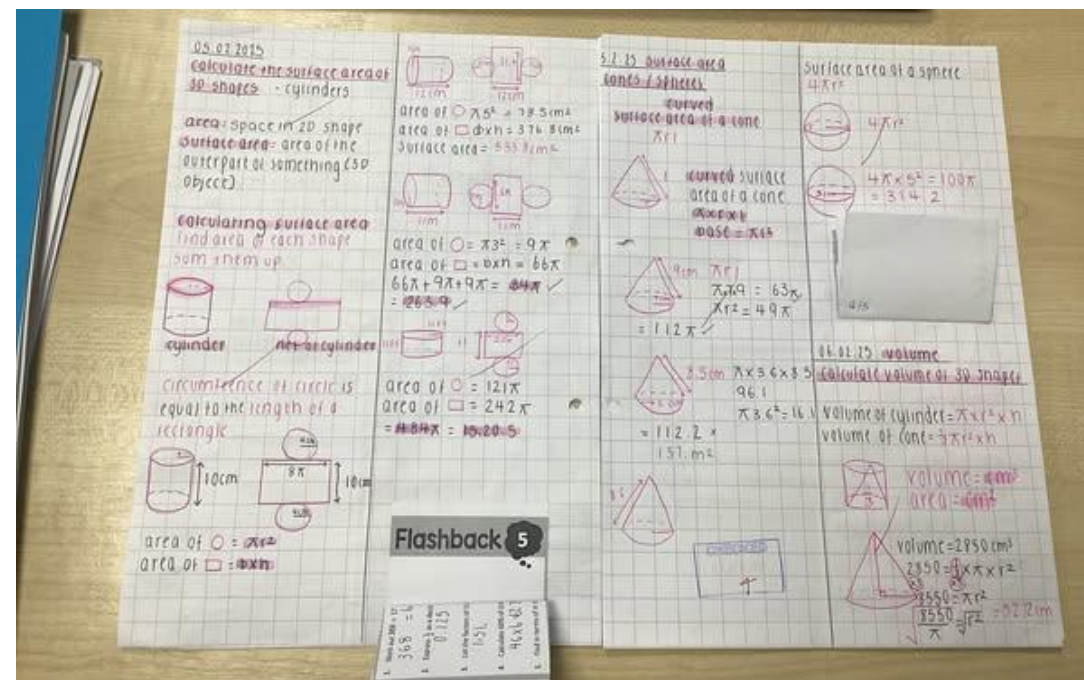 05.02.2025
Calculate the surface area of
3D shapes - cylinders
area: space in 2D shape
surface area: area of the
outerpart of something (3D
object)
calculating surface area
find area of each shape
sum them up.
cylinder
net of cylinder
circumfrence of circle is
equal to the length of a
rectangle
10cm
8π
10cm
area of ○ = πr2
area of □ = bxh
12cm
12cm
area of ○ π5² = 78.5cm2
area of □ bxh = 376.8cm2
surface area =
11m
11m
area of ○ = π3² = 9π
area of □ = bxh = 66π
66π+9π+9π = 84π ✓
= 263.9 ✓
area of ○ = 121π
area of □ = 242π
= 484π = 1520.5
Flashback 5
368
0.125
5.2.25 surface area
cones / spheres
curved
surface area of a cone
πrl
curved surface
area of a cone
πxrxl
base = πr2
9cm
πrl
π,7,9 = 63π
πr2 = 49π
= 112π ✓
8.5cm
π×3.6×8.5
96.1
= 112.2 ×
137.m2
surface area of a sphere
4πr²
4πr²
4π×5² = 100π
= 314.2
06.02.25 volume
calculate volume of 3D shapes
volume of cylinder = πxr²xh
volume of cone = ⅓πr²xh
volume = cm³
area = cm²
volume = 2850cm³
2850 = ⅓×π×r²
8550 = πr²
√8550/π = √r²